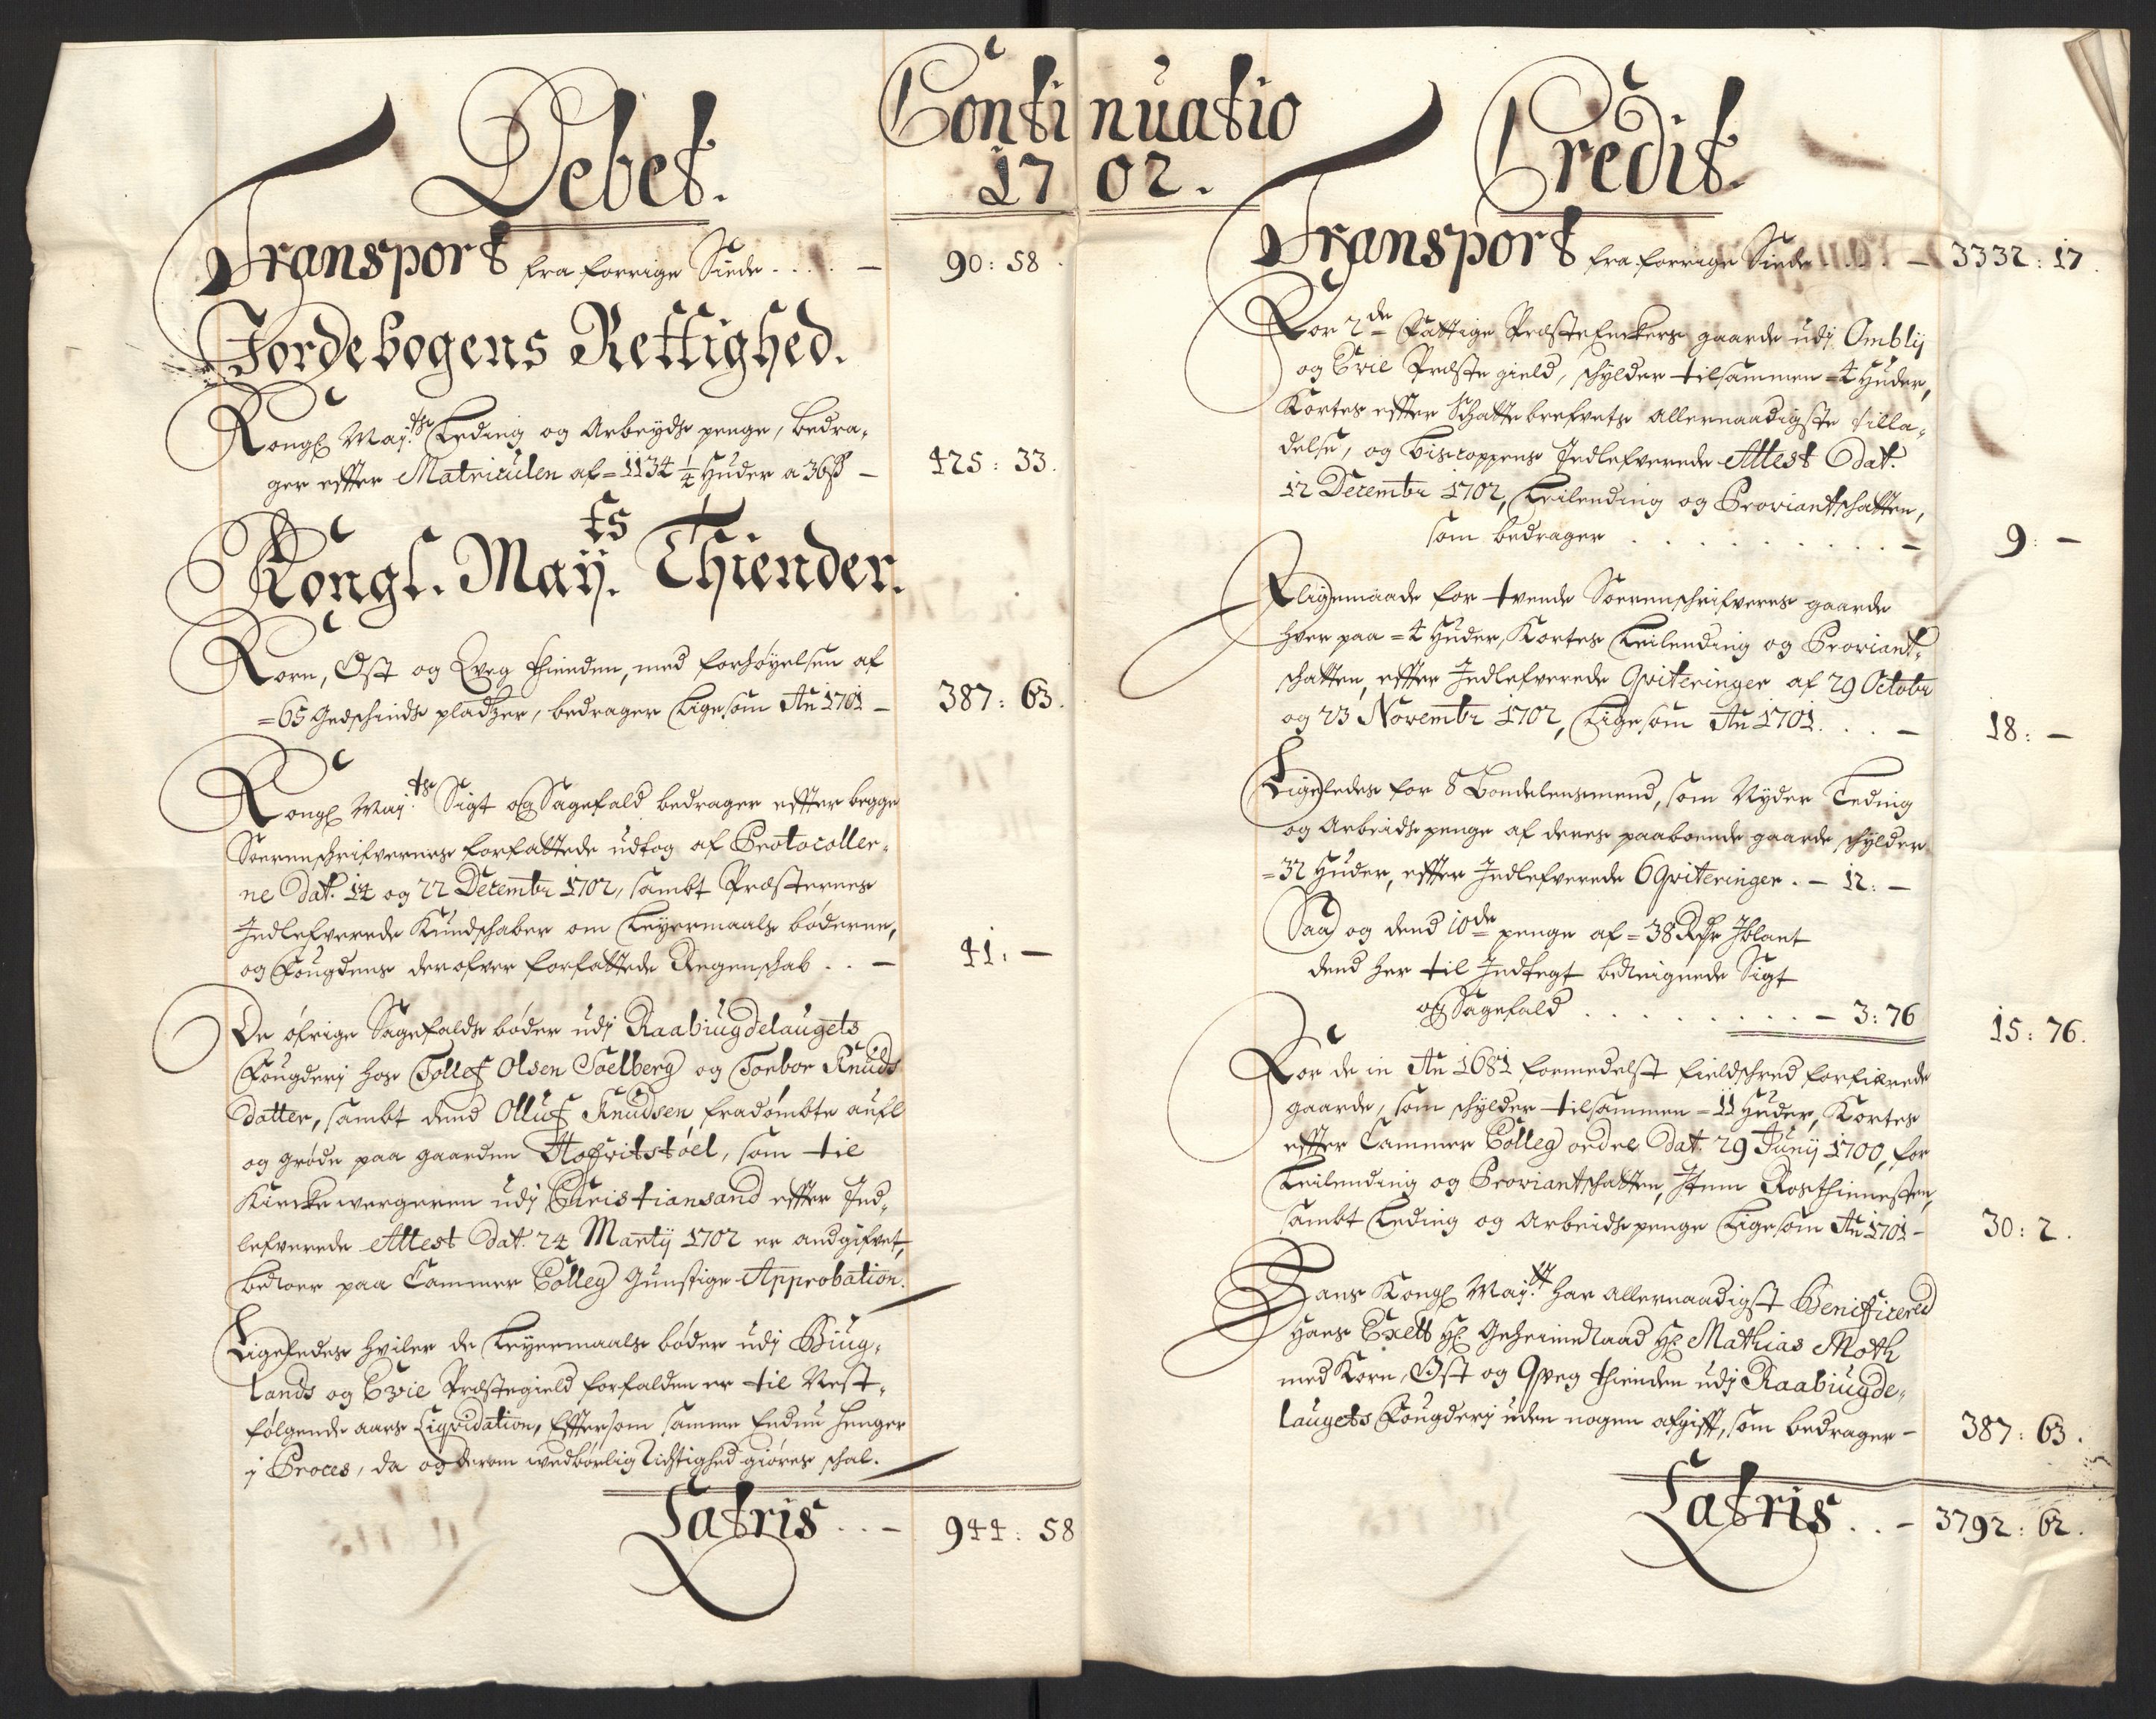 Continuatio
1702.
Debet.
Transport fra forrige Siide . . . . — 90 : 58
Jordebogens Rettighed.
Kongl May:ts Leding og Arbeyds penge, bedra-
ger effter Matriculen af = 1134 1/4 Huder a 36ß — 425 : 33.
Kongl. Maÿ:ts Thiender.
Korn, Ost og Qveg thienden, med forhøyelsen af
= 65 Gedschinds pladtzer, bedrager Ligesom Ao 1701 — 387 : 63.
Kongl May:ts Sigt og Sagefald bedrager effter begge
Sorenschrifvernes forfattede udtog af Protocoller-
ne Dat. 14 og 22 Decembr 1702, sambt Præsternes
Indlefverede Kundschaber om Leyermaals bøderne,
og Fougdens derofver forfattede Regenschab . . — 41 : —
De øfrige Sagefalds bøder udj Raabiugdelaugets
Fougderj hos Tollef Olsen Soelberg og Torbor Knuds
datter, sambt dend Olluf Knudsen fradømbte aufl
og grøde paa gaarden Hofvitstøel, som til
Kirkewergeren udj Christiansand effter Ind-
lefverede Attest Dat. 24 Martij 1702 er andgifvet,
beroer paa Cammer Colleg Gunstige Approbation.
Ligeledes hviler de Leyermaals bøder udj Biug-
lands og Evie Præstegield forfalden er til Nest-
følgende aars Liqvidation, Efftersom samme Endnu henger
j Proces, da og derom wedbørlig Rigtighed giøres schal.
Latris . . — 944 : 58
Credit.
Transport fra forrige Siide . . . — 3332 : 17.
For 2de Fattige Præste Enckers gaarde udj Omblij
og Evie Præste gield, schylder tilsammen = 4 Huder,
Kortes effter Schattebrefvets allernaadigste tilla-
delse, og Biscoppens Indlefverede Attest Dat.
12 Decembr 1702, Leilending og Proviantschatten,
som bedrager . . . . . . . — 9 : —
I Ligemaade for tvende Sorenschrifveres gaarde
hver paa = 4 Huder, Kortes Leilending og Proviant-
schatten, effter Indlefverede Qviteringer af 29 Octobr
og 23 Novembr 1702, Ligesom Ao 1701 . . . — 18 : —
Ligeledes for 8 Bondelensmend, som Nyder Leding
og Arbeids penge af deres paaboende gaarde schylder
= 32 Huder, effter Indlefverede 6 Qviteringer . — 12 : —
Saa og dend 10de penge af = 38 Rdr Iblant
dend her til Indtegt beregnede Sigt
og Sagefald . . . . . . . . . — 3 : 76 15 : 76.
For de in Ao 1681 formedelst fieldschred forfærede
gaarde, som schylder tilsammen = 11 Huder, Kortes
effter Cammer Colleg ordre Dat. 29 Junij 1700, for
Leilending og Proviantschatten, Item Rostheinesten,
sambt Leding og Arbeids penge Ligesom Ao 1701 — 30 : 2.
Hans Kongl May:tt har allernaadigst Benificered
Hans Exell Hr Geheimeraad Hr Mathias Moth
med Korn, Ost og Qveg thienden udj Raabiugde-
laugets Fougderj uden nogen afgifft, som bedrager — 387 : 63.
Latris . . — 3792 : 62.